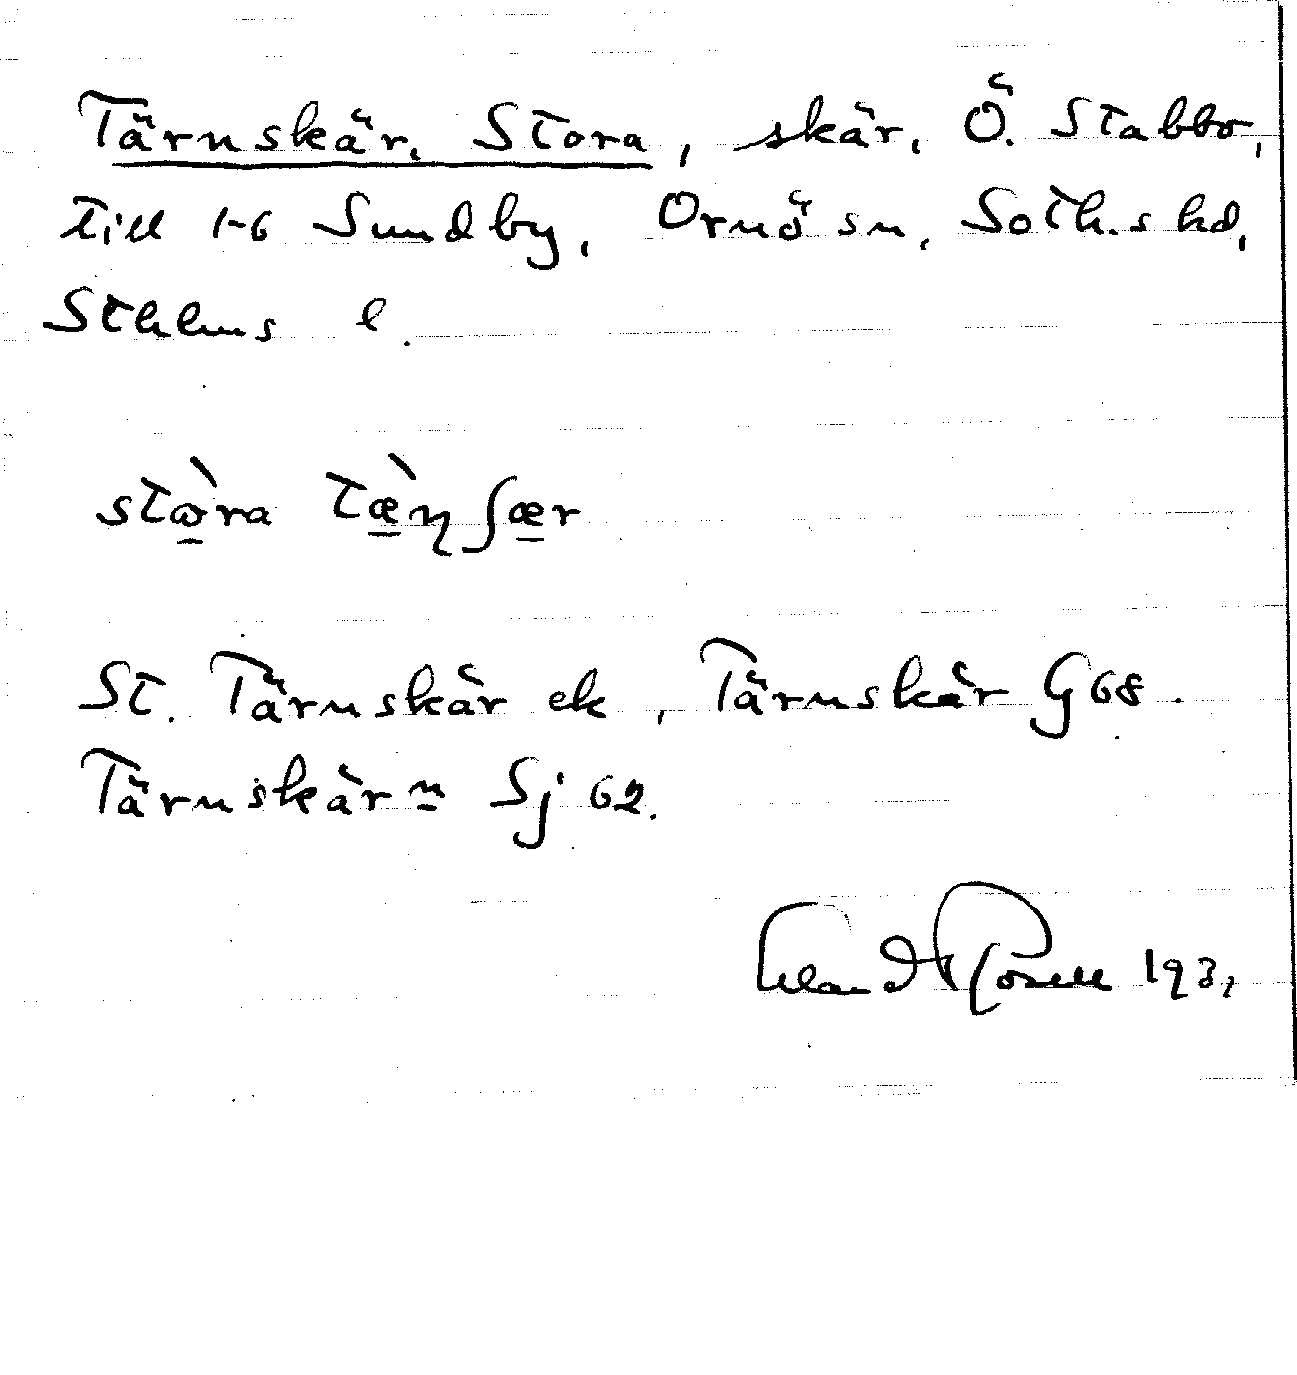 Tärnskär, Stora, skär, Ö. Stabbo,
till 1-6 Sundby, Ornö sn, Soth.s hd,
Sthlms l.
stɷ̠̀ra tæ̠̀ɳʃæ̠r
St. Tärnskär ek, Tärnskär G 68.
Tärnskär n Sj 62.
Rosell 193